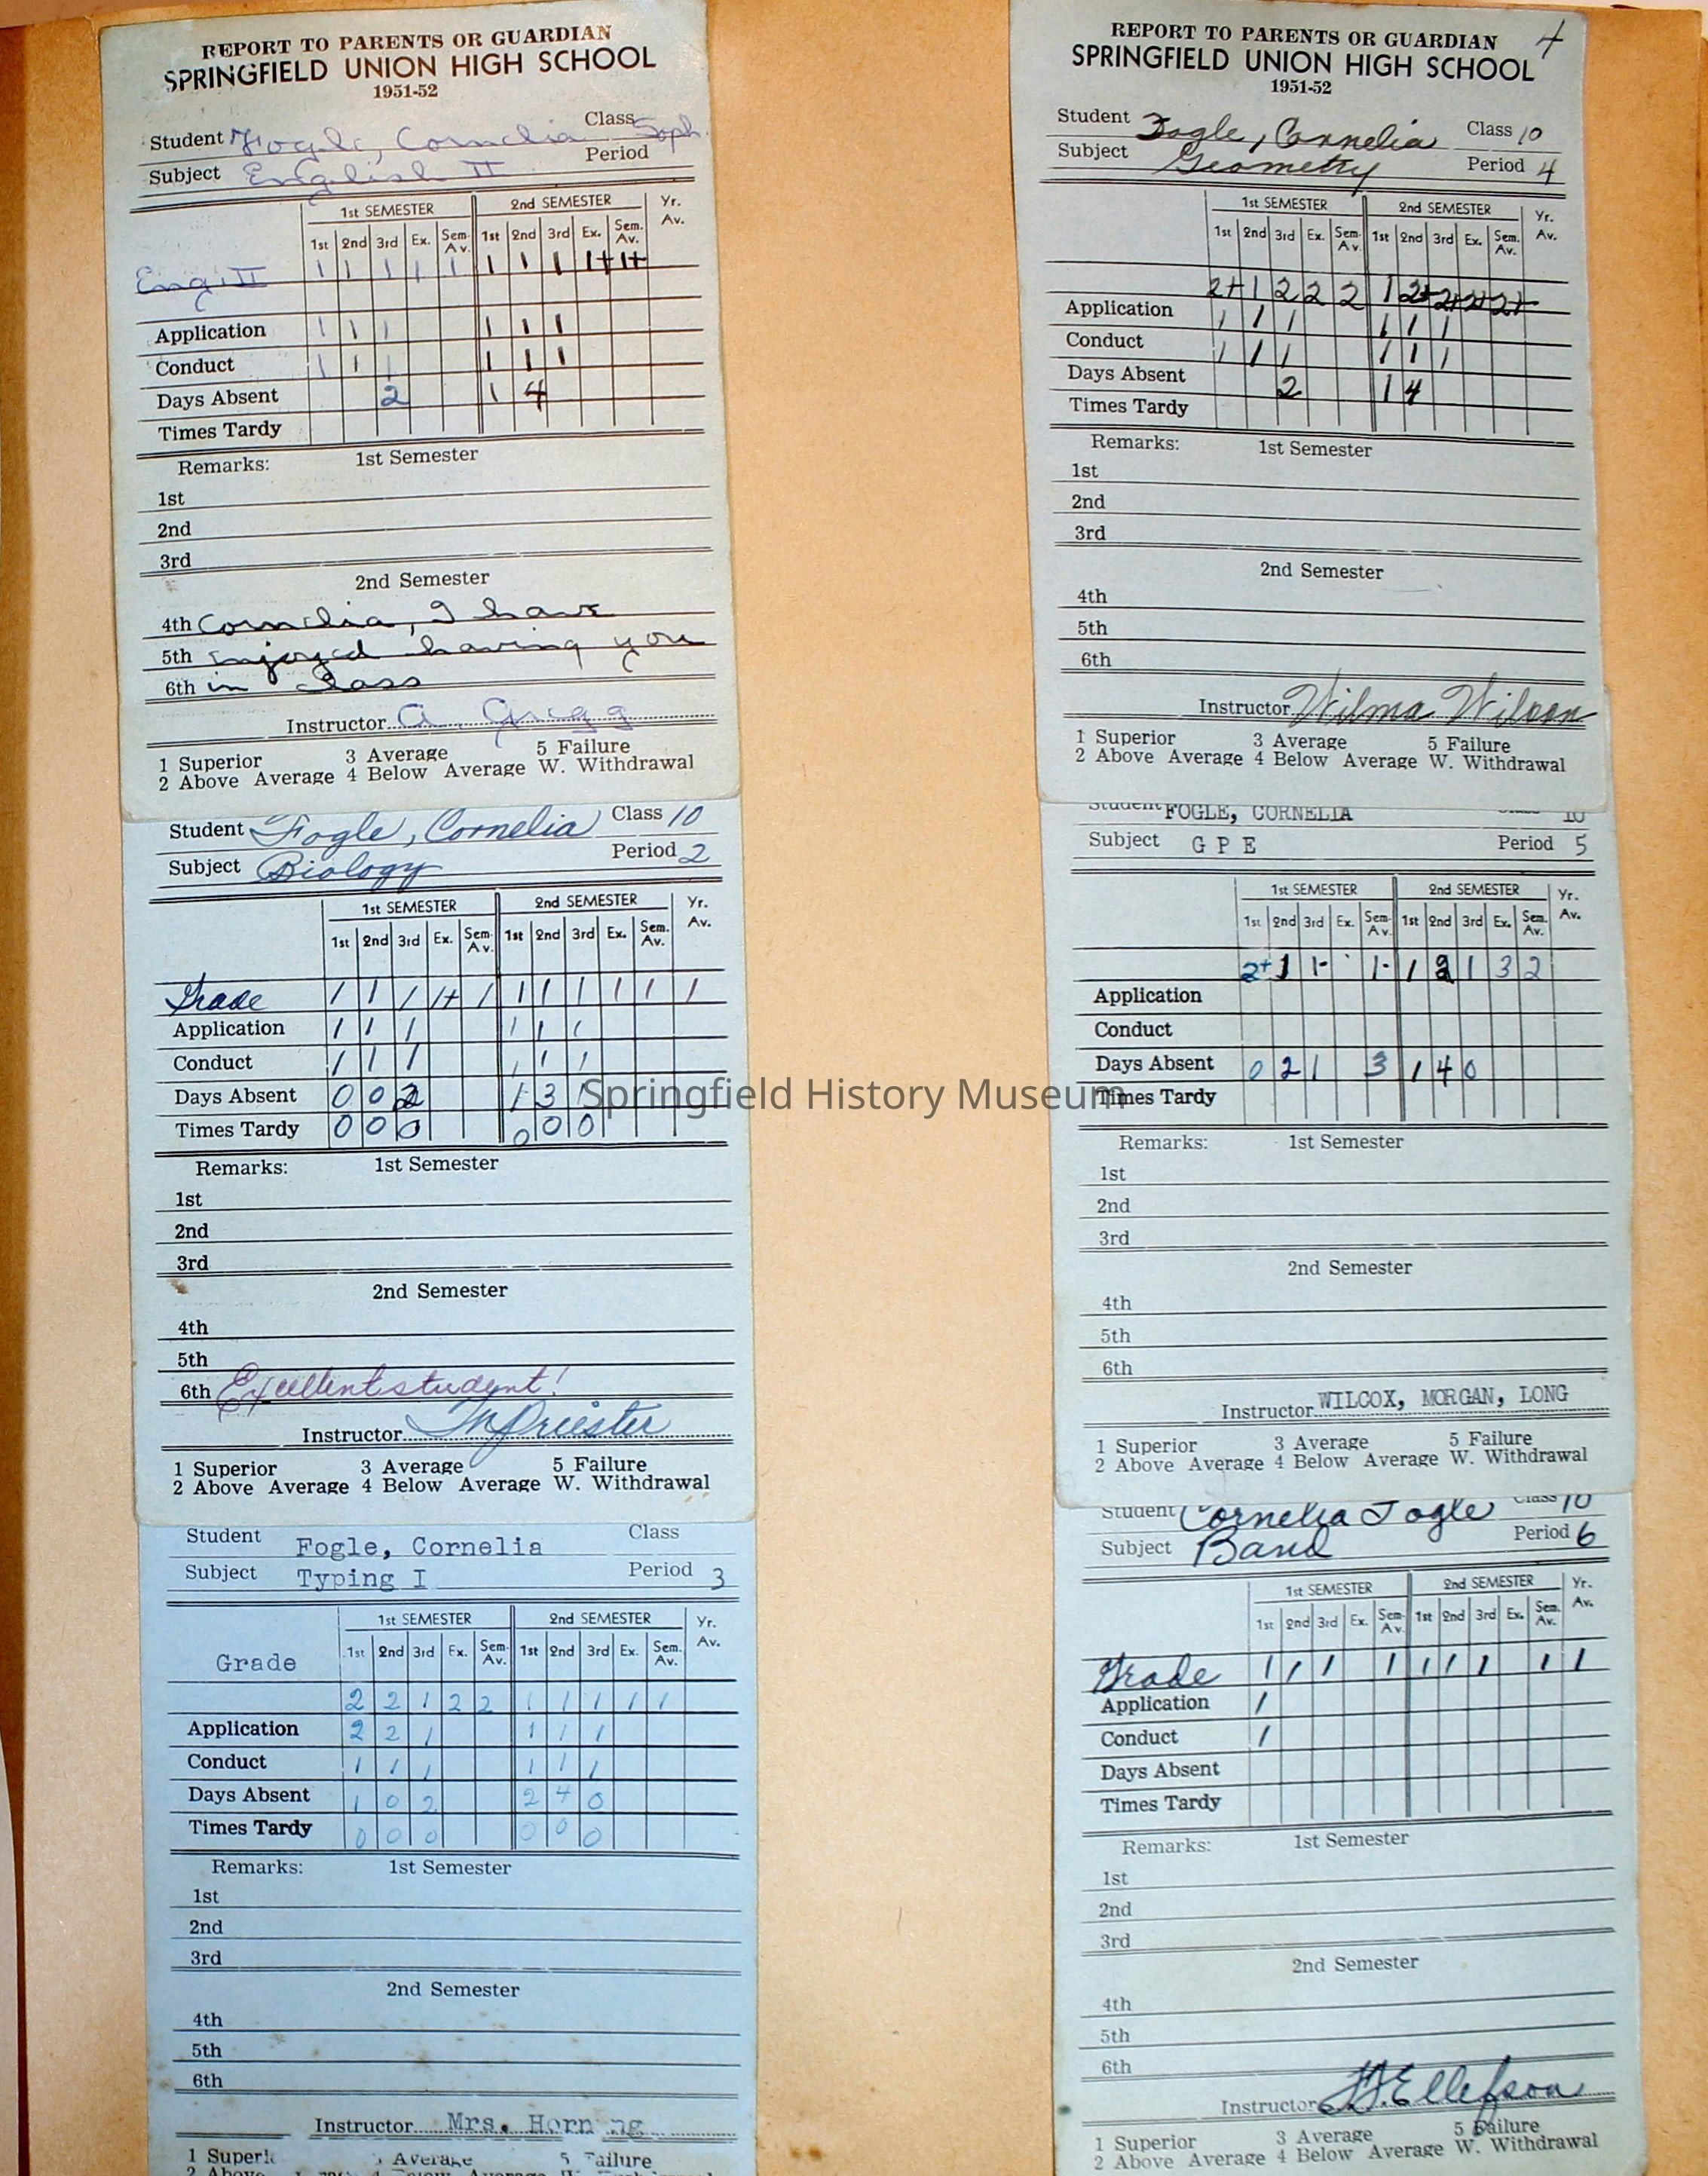 REPORT TO PARENTS OR GUARDIAN
SPRINGFIELD UNION HIGH SCHOOL
1951-52
Student Fogle, Cornelia Class Soph.
Subject English II Period
1st SEMESTER 2nd SEMESTER Yr. Av.
1st 2nd 3rd Ex. Sem. Av. 1st 2nd 3rd Ex. Sem. Av.
Eng. II 1 1 1 1 1 1 1 1 1+ 1+
Application 1 1 1 1 1 1
Conduct 1 1 1 1 1 1
Days Absent 2 1 4
Times Tardy
Remarks: 1st Semester
1st
2nd
3rd
2nd Semester
4th Cornelia, I have
5th enjoyed having you
6th in class
Instructor A. Grigg
1 Superior 3 Average 5 Failure
2 Above Average 4 Below Average W. Withdrawal
Student Fogle, Cornelia Class 10
Subject Biology Period 2
1st SEMESTER 2nd SEMESTER Yr. Av.
1st 2nd 3rd Ex. Sem. Av. 1st 2nd 3rd Ex. Sem. Av.
Grade 1 1 1 1+ 1 1 1 1 1 1 1
Application 1 1 1 1 1 1
Conduct 1 1 1 1 1 1
Days Absent 0 0 2 1 3 1
Times Tardy 0 0 0 0 0 0
Remarks: 1st Semester
1st
2nd
3rd
2nd Semester
4th
5th
6th Excellent student!
Instructor M Priester
1 Superior 3 Average 5 Failure
2 Above Average 4 Below Average W. Withdrawal
Student Fogle, Cornelia Class
Subject Typing I Period 3
1st SEMESTER 2nd SEMESTER Yr. Av.
Grade 1st 2nd 3rd Ex. Sem. Av. 1st 2nd 3rd Ex. Sem. Av.
2 2 1 2 2 1 1 1 1 1
Application 2 2 1 1 1 1
Conduct 1 1 1 1 1 1
Days Absent 1 0 2 2 4 0
Times Tardy 0 0 0 0 0 0
Remarks: 1st Semester
1st
2nd
3rd
2nd Semester
4th
5th
6th
Instructor Mrs.
1 Average 5
REPORT TO PARENTS OR GUARDIAN 4
SPRINGFIELD UNION HIGH SCHOOL
1951-52
Student Fogle, Cornelia Class 10
Subject Geometry Period 4
1st SEMESTER 2nd SEMESTER Yr. Av.
1st 2nd 3rd Ex. Sem. Av. 1st 2nd 3rd Ex. Sem. Av.
2+ 1 2 2 2 1 2+ 2+ 2+ 2+
Application 1 1 1 1 1 1
Conduct 1 1 1 1 1 1
Days Absent 2 1 4
Times Tardy
Remarks: 1st Semester
1st
2nd
3rd
2nd Semester
4th
5th
6th
Instructor Wilma Wilson
1 Superior 3 Average 5 Failure
2 Above Average 4 Below Average W. Withdrawal
Student FOGLE, CORNELIA Class 10
Subject G P E Period 5
1st SEMESTER 2nd SEMESTER Yr. Av.
1st 2nd 3rd Ex. Sem. Av. 1st 2nd 3rd Ex. Sem. Av.
2+ 1 1- 1- 1 2 1 3 2
Application
Conduct
Days Absent 0 2 1 3 1 4 0
Times Tardy
Remarks: 1st Semester
1st
2nd
3rd
2nd Semester
4th
5th
6th
Instructor WILCOX, MORGAN, LONG
1 Superior 3 Average 5 Failure
2 Above Average 4 Below Average W. Withdrawal
Student Cornelia Fogle Class 10
Subject Band Period 6
1st SEMESTER 2nd SEMESTER Yr. Av.
1st 2nd 3rd Ex. Sem. Av. 1st 2nd 3rd Ex. Sem. Av.
Grade 1 1 1 1 1 1 1 1 1
Application 1
Conduct 1
Days Absent
Times Tardy
Remarks: 1st Semester
1st
2nd
3rd
2nd Semester
4th
5th
6th
Instructor Ellefson
1 Superior 3 Average 5 Failure
2 Above Average 4 Below Average W. Withdrawal
Springfield History Museum